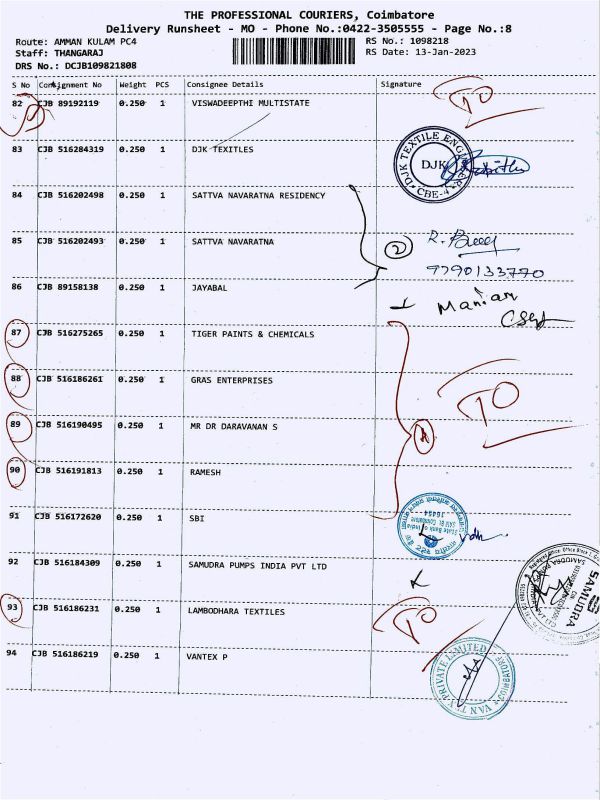 THE PROFESSIONAL COURIERS, Coimbatore
Delivery Runsheet - MO - Phone No.:0422-3505555 - Page No.:8
Route: AMMAN KULAM PC4 RS No.: 1098218
Staff: THANGARAJ RS Date: 13-Jan-2023
DRS No.: DCJB109821808
S No Consignment No Weight PCS Consignee Details Signature
82 CJB 89192119 0.250 1 VISWADEEPTHI MULTISTATE TO
83 CJB 516284319 0.250 1 DJK TEXITLES
DJK TEXTILE ENGINEERS
DJK
CBE-4
84 CJB 516202498 0.250 1 SATTVA NAVARATNA RESIDENCY
85 CJB 516202493 0.250 1 SATTVA NAVARATNA 2
7790133770
86 CJB 89158138 0.250 1 JAYABAL
Manian
87 CJB 516275265 0.250 1 TIGER PAINTS & CHEMICALS
88 CJB 516186261 0.250 1 GRAS ENTERPRISES
TO
89 CJB 516190495 0.250 1 MR DR DARAVANAN S
90 CJB 516191813 0.250 1 RAMESH
91 CJB 516172620 0.250 1 SBI
State Bank of India
92 CJB 516184309 0.250 1 SAMUDRA PUMPS INDIA PVT LTD
SAMUDRA
93 CJB 516186231 0.250 1 LAMBODHARA TEXTILES TO
94 CJB 516186219 0.250 1 VANTEX P
PRIVATE LIMITED